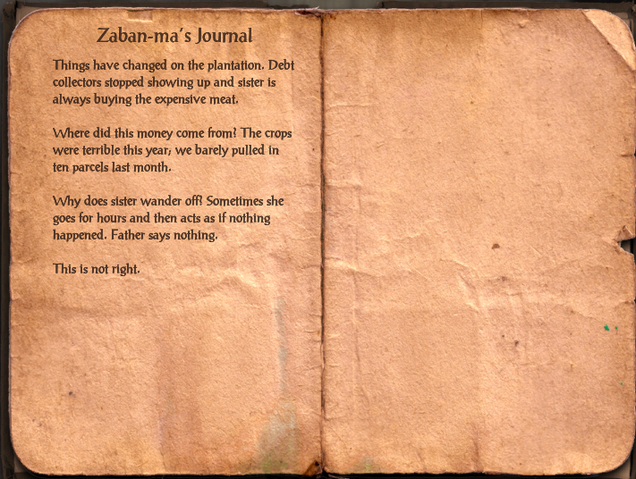 Zaban-ma's Journal
Things have changed on the plantation. Debt
collectors stopped showing up and sister is
always buying the expensive meat.
Where did this money come from? The crops
were terrible this year; we barely pulled in
ten parcels last month.
Why does sister wander off? Sometimes she
goes for hours and then acts as if nothing
happened. Father says nothing.
This is not right.